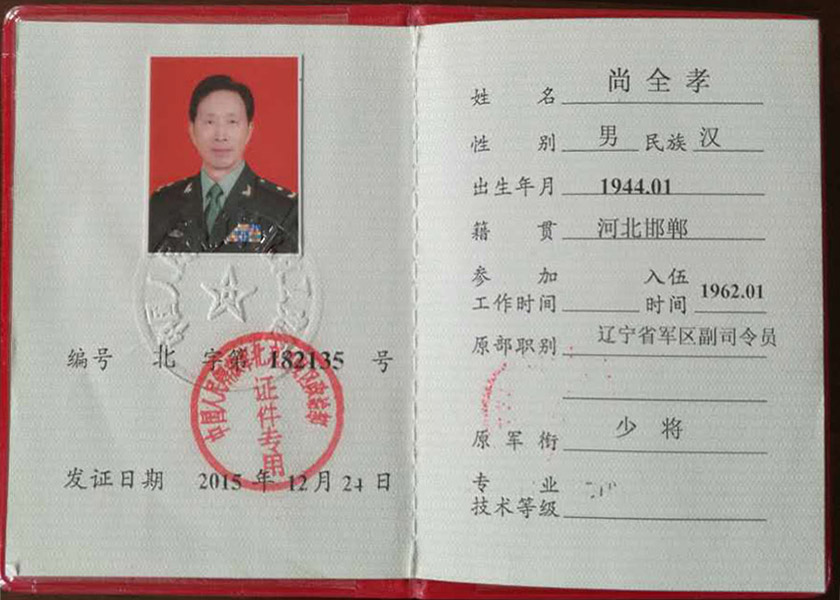 编号 北 字第 182135 号
证件专用
发证日期 2015 年 12 月 24 日
姓名 尚全孝
性别 男 民族 汉
出生年月 1944.01
籍贯 河北邯郸
参加 入伍
工作时间 时间 1962.01
原部职别 辽宁省军区副司令员
原军衔 少将
专业
技术等级